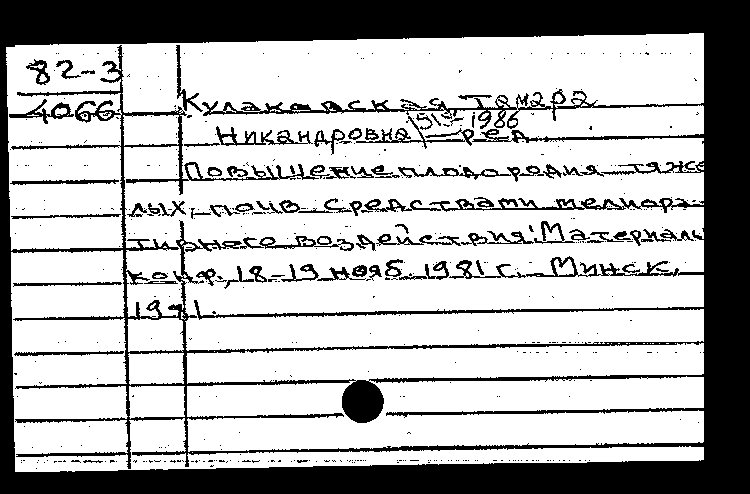 82-3
4066
Кулаковская, Тамара
Никандровна, 1919-1986
ред.
Повышение плодородия тяже
лых почв средствами мелиора-
тивного воздействия: Материалы
конф., 18-19 нояб. 1981 г. - Минск,
1981.